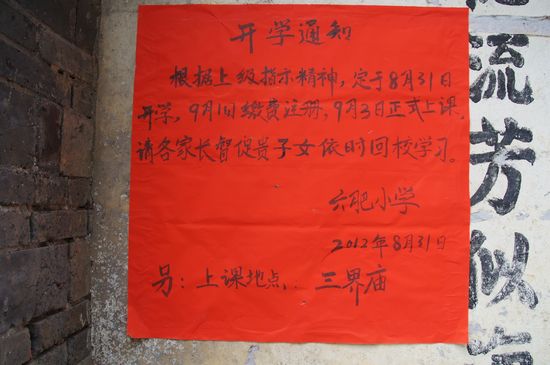 开学通知
根据上级指示精神，定于8月31日
开学，9月1日缴费注册，9月3日正式上课，
请各家长督促贵子女依时回校学习。
六肥小学
2012年8月31日
另：上课地点：三界庙
流芳似